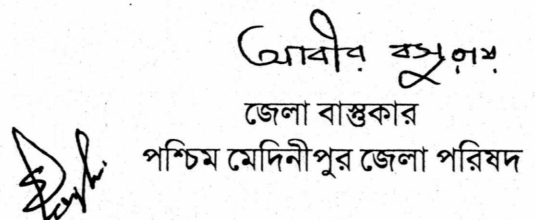 আবীর
জেলা বাস্তুকার
পশ্চিম মেদিনীপুর জেলা পরিষদ